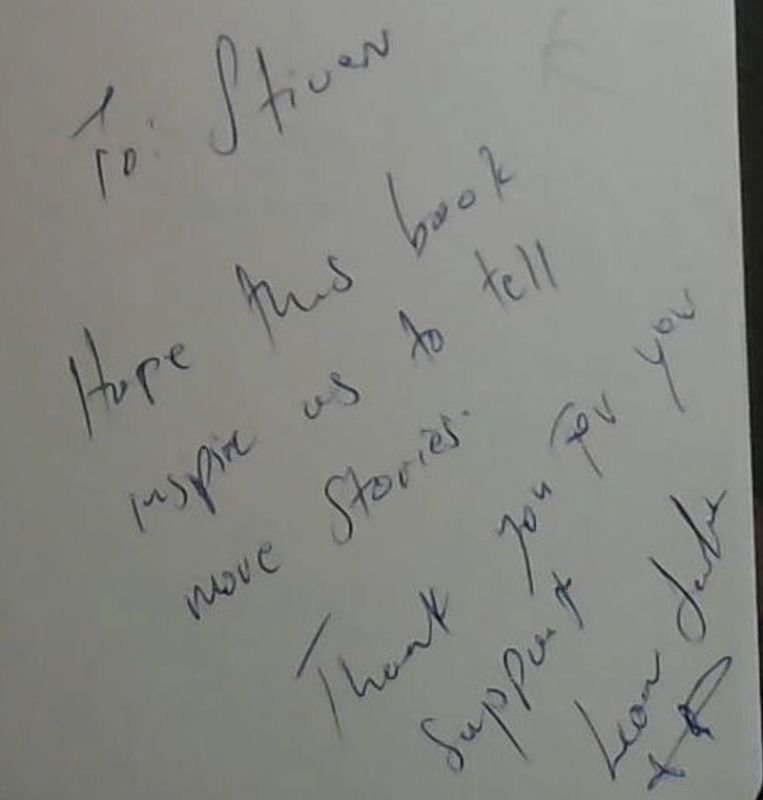 To: Stiven
Hope this book
inspire us to tell
more Stories.
Thank you for you
support
Leon